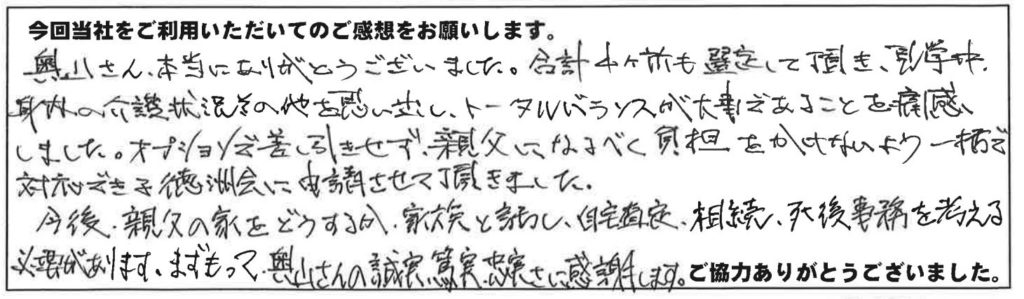 今回当社をご利用いただいてのご感想をお願いします。
奥山さん、本当にありがとうございました。合計4ヶ所も選定して頂き、見学中、
身内の介護状況その他を思い出し、トータルバランスが大事であることを痛感
しました。オプションで差し引きせず、親父になるべく負担をかけないよう一括で
対応できる徳洲会に申請させて頂きました。
今後、親父の家をどうするか、家族と話し、自宅査定、相続、死後事務を考える
必要があります。まずもって、奥山さんの誠実、篤実、忠実さに感謝します。ご協力ありがとうございました。